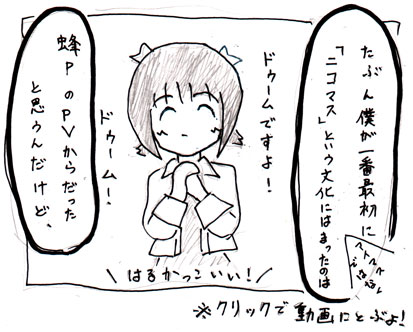 たぶん僕が一番最初に
「ニコマス」という文化にはまったのは
ドゥームですよ！
ドゥーム！
蜂PのPVからだった
と思うんだけど、
＼はるかっこいい！／
※クリックで動画にとぶよ！